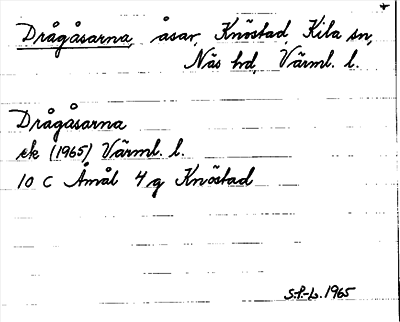 Drågåsarna, åsar, Knöstad, Kila sn,
Näs hd, Värml. l.
Drågåsarna
ek (1965) Värml. l.
10 C Åmål 4 g Knöstad
S.P-L. 1965